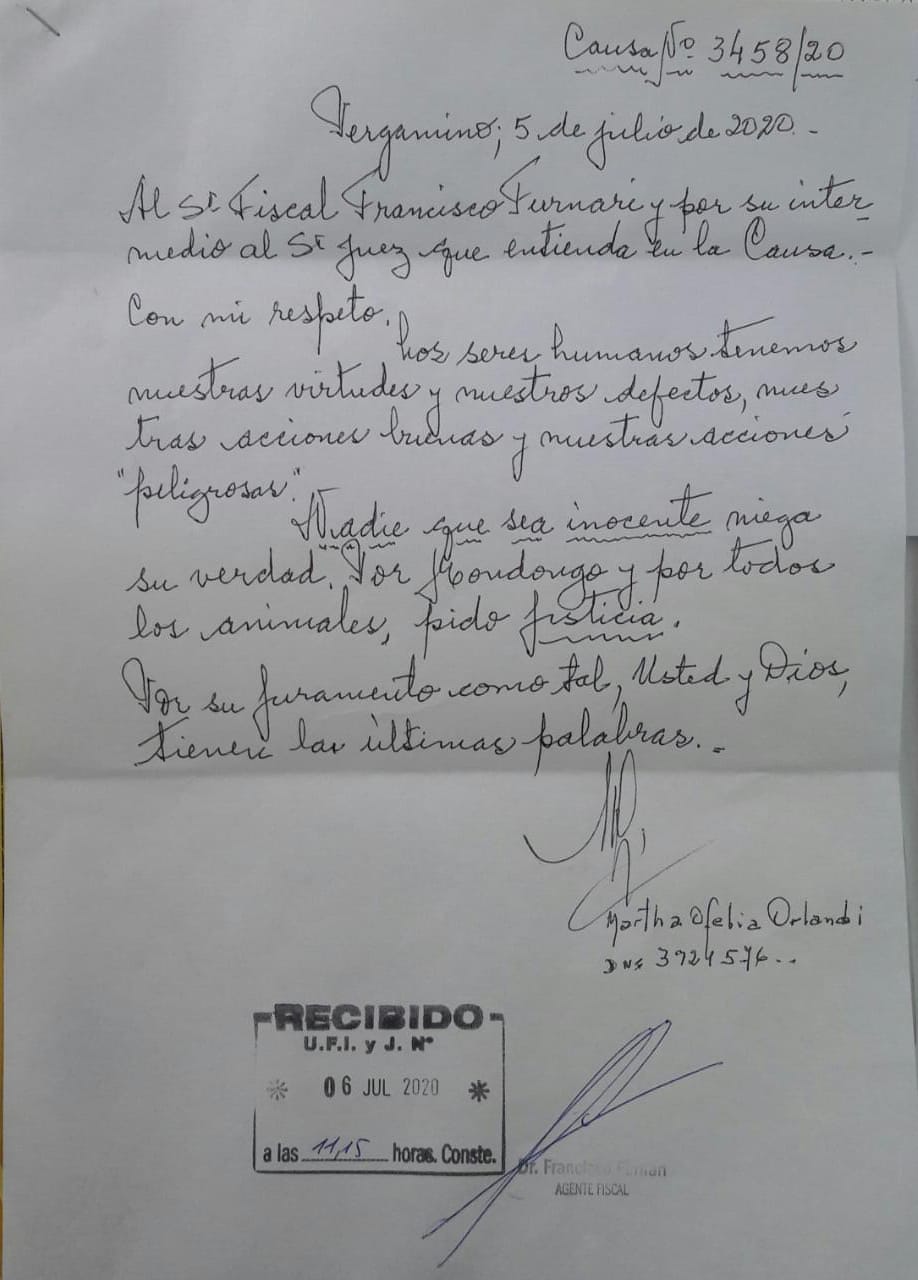 Causa Nº 3458/20
Pergamino, 5 de julio de 2020.-
Al Sr Fiscal Francisco Furnari y por su inter
medio al Sr Juez que entienda en la Causa.-
Con mi respeto.
Los seres humanos tenemos
nuestras virtudes y nuestros defectos, nues
tras acciones buenas y nuestras acciones
"peligrosas".
Nadie que sea inocente niega
su verdad. Por Mondongo y por todos
los animales, pido justicia.
Por su juramento como tal, Usted y Dios,
tienen las últimas palabras.-
Martha Ofelia Orlandi
DNI 3924576..
RECIBIDO
U.F.I. y J. Nº
* 06 JUL 2020 *
a las 11,15 horas. Conste.
Dr. Francisco Furnari
AGENTE FISCAL